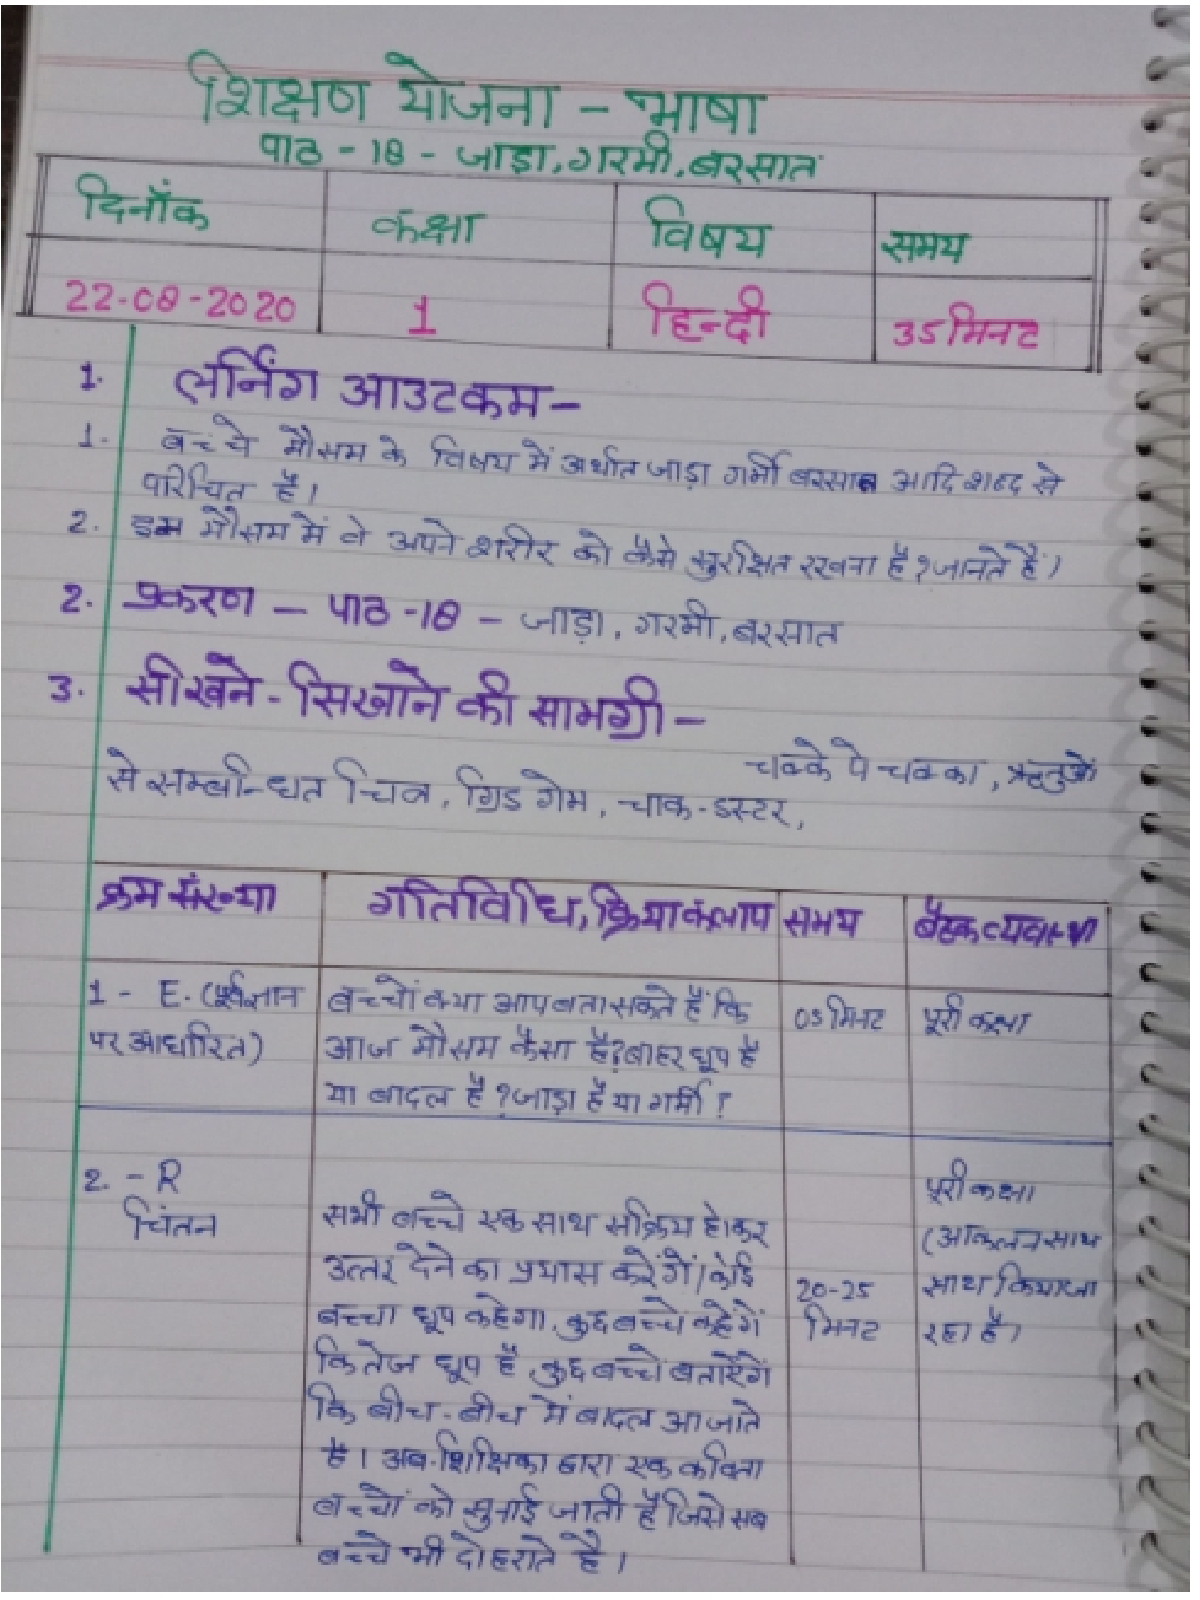 शिक्षण योजना - भाषा
पाठ - 18 - जाड़ा, गरमी, बरसात
दिनाँक कक्षा विषय समय
22-08-2020 1 हिन्दी 35 मिनट
1. लर्निंग आउटकम -
1. बच्चे मौसम के विषय में अर्थात जाड़ा गर्मी बरसात आदि शब्द से
परिचित है।
2. इस मौसम में वे अपने शरीर को कैसे सुरक्षित रखना है? जानते हैं।
2. प्रकरण - पाठ -18 - जाड़ा, गरमी, बरसात
3. सीखने - सिखाने की सामग्री -
चक्के पे चक्का, ऋतुओं
से सम्बन्धित चित्र, ग्रिड गेम, चाक - डस्टर,
क्रम संख्या गतिविधि, क्रियाकलाप समय बैठक व्यवस्था
1 - E. (पूर्वज्ञान
पर आधारित)
बच्चों क्या आप बता सकते हैं कि
आज मौसम कैसा है? बाहर धूप है
या बादल है? जाड़ा है या गर्मी?
05 मिनट
पूरी कक्षा
2. - R
चिंतन
सभी बच्चे एक साथ सक्रिय होकर
उत्तर देने का प्रयास करेंगें। कोई
बच्चा धूप कहेगा, कुछ बच्चे कहेंगें
कि तेज धूप है, कुछ बच्चे बताऐंगें
कि बीच - बीच में बादल आ जाते
है। अब शिक्षिका द्वारा एक कविता
बच्चों को सुनाई जाती है जिसे सब
बच्चे भी दोहराते है।
20-25
मिनट
पूरी कक्षा
(आकलन साथ
साथ किया जा
रहा है)